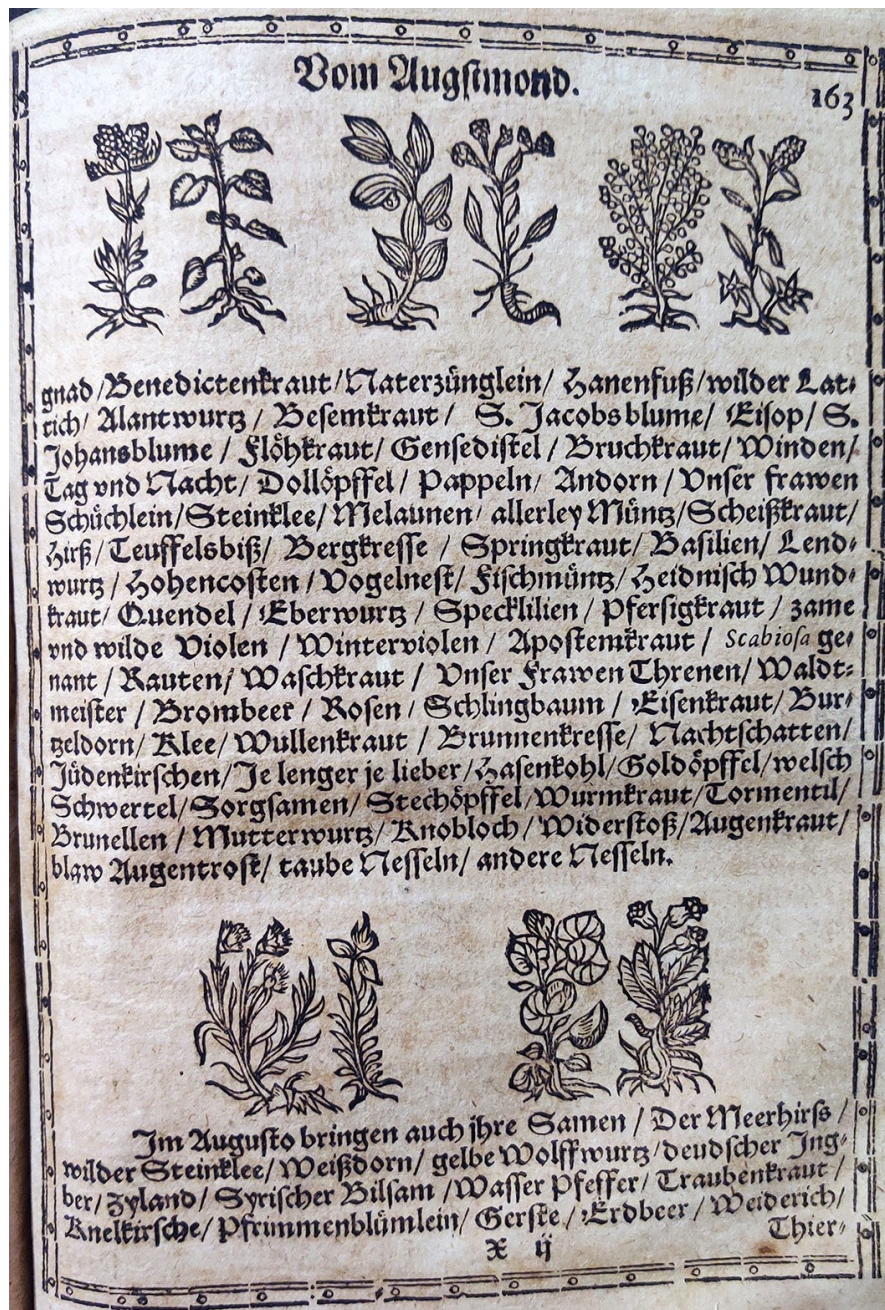 Vom Augstmond.
163
gnad /Benedictenkraut/Naterzünglein/ Hanenfuß/wilder Lat⸗
tich/ Alantwurtz / Besemkraut / S. Jacobsblume/ Eisop/ S.
Johansblume / Flöhkraut/ Gensedistel / Bruchkraut/ Winden/
Tag vnd Nacht/ Dollöpffel/ Pappeln/ Andorn/ Vnser frawen
Schüchlein/Steinklee/Melaunen/ allerley Müntz/Scheißkraut/
Hirß/Teuffelsbiß/ Bergkresse / Springkraut/Basilien/ Lend⸗
wurtz / Hohencosten /Vogelnest/ Fischmüntz/Heidnisch Wund⸗
kraut/ Quendel / Eberwurtz / Specklilien / Pfersigkraut / zame
vnd wilde Violen / Winterviolen / Apostemkraut / Scabiosa ge⸗
nant / Rauten/ Waschkraut / Vnser Frawen Threnen/ Waldt⸗
meister / Brombeer / Rosen / Schlingbaum / Eisenkraut/ Bur⸗
tzeldorn/ Klee/ Wullenkraut / Brunnenkresse/ Nachtschatten/
Jüdenkirschen/Je lenger je lieber/Hasenkohl/Goldöpffel/welsch
Schwertel/Sorgsamen/ Stechöpffel/Wurmkraut/Tormentil/
Brunellen / Mutterwurtz/ Knobloch/ Widerstoß/Augenkraut/
blaw Augentrost/ taube Nesseln/ andere Nesseln.
Im Augusto bringen auch jhre Samen / Der Meerhirss /
wilder Steinklee/ Weißdorn/ gelbe Wolffwurtz/deudscher Ing⸗
ber/ Zyland/ Syrischer Bilsam /Wasser Pfeffer/ Traubenkraut /
Knelkirsche/ Pfrimmenblümlein/ Gerste / Erdbeer / Weiderich/
Thier⸗
X ij